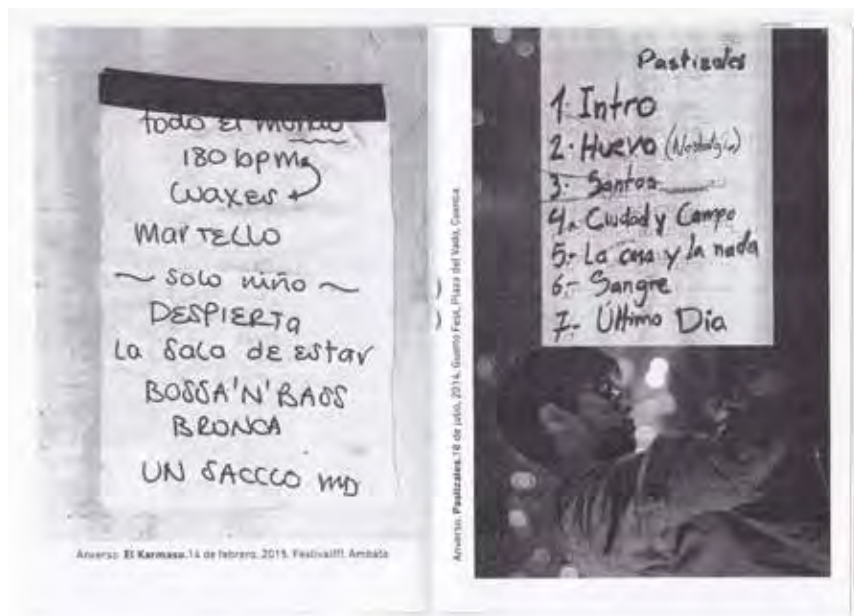 todo El mundo
180 bpms
waxes +
MARTELLO
~ solo niño ~
DESPIERTA
La Sala de estar
BOSSA'N'BASS
BRONCA
UN SACCCO MD
Anverso. El Karmaso.14 de febrero, 2015. Festivalfff. Ambato
Anverso. Pastizales.18 de julio, 2014. Guonto Fest, Plaza del Vado, Cuenca
Pastizales
1. Intro
2. Huevo (Nostalgia)
3. Santos
4. Ciudad y Campo
5.- La casa y la nada
6.- Sangre
7.- Último Día